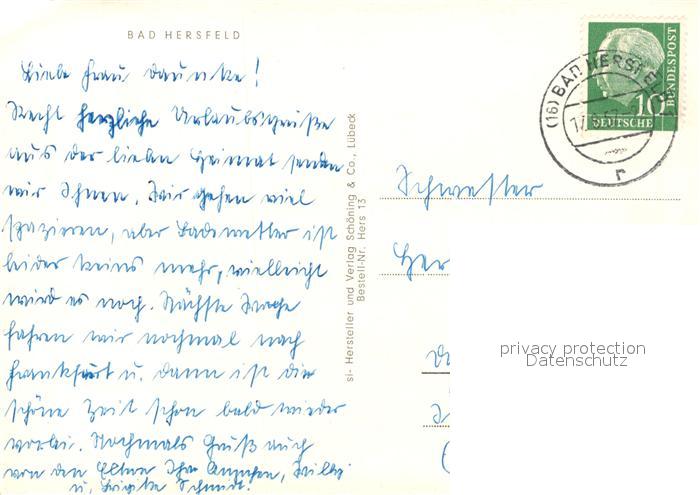 BAD HERSFELD
Liebe Frau Daunke!
Recht herzliche Urlaubsgrüße
aus der lieben Heimat senden
wir Ihnen. Wir gehen viel
spazieren, aber Badewetter ist
leider keins mehr, vielleicht
wird es noch. Nächste Woche
fahren wir nochmal nach
Frankfurt u. dann ist die
schöne Zeit schon bald wieder
vorbei. Nochmals Gruß auch
von den Eltern Ihre Ännchen, Willy
u. Brigitte Schmidt.
si- Hersteller und Verlag Schöning & Co., Lübeck
Bestell-Nr. Hers 13
(16) BAD HERSFELD
r
10
DEUTSCHE
BUNDESPOST
Schwester
Her
privacy protection
Datenschutz